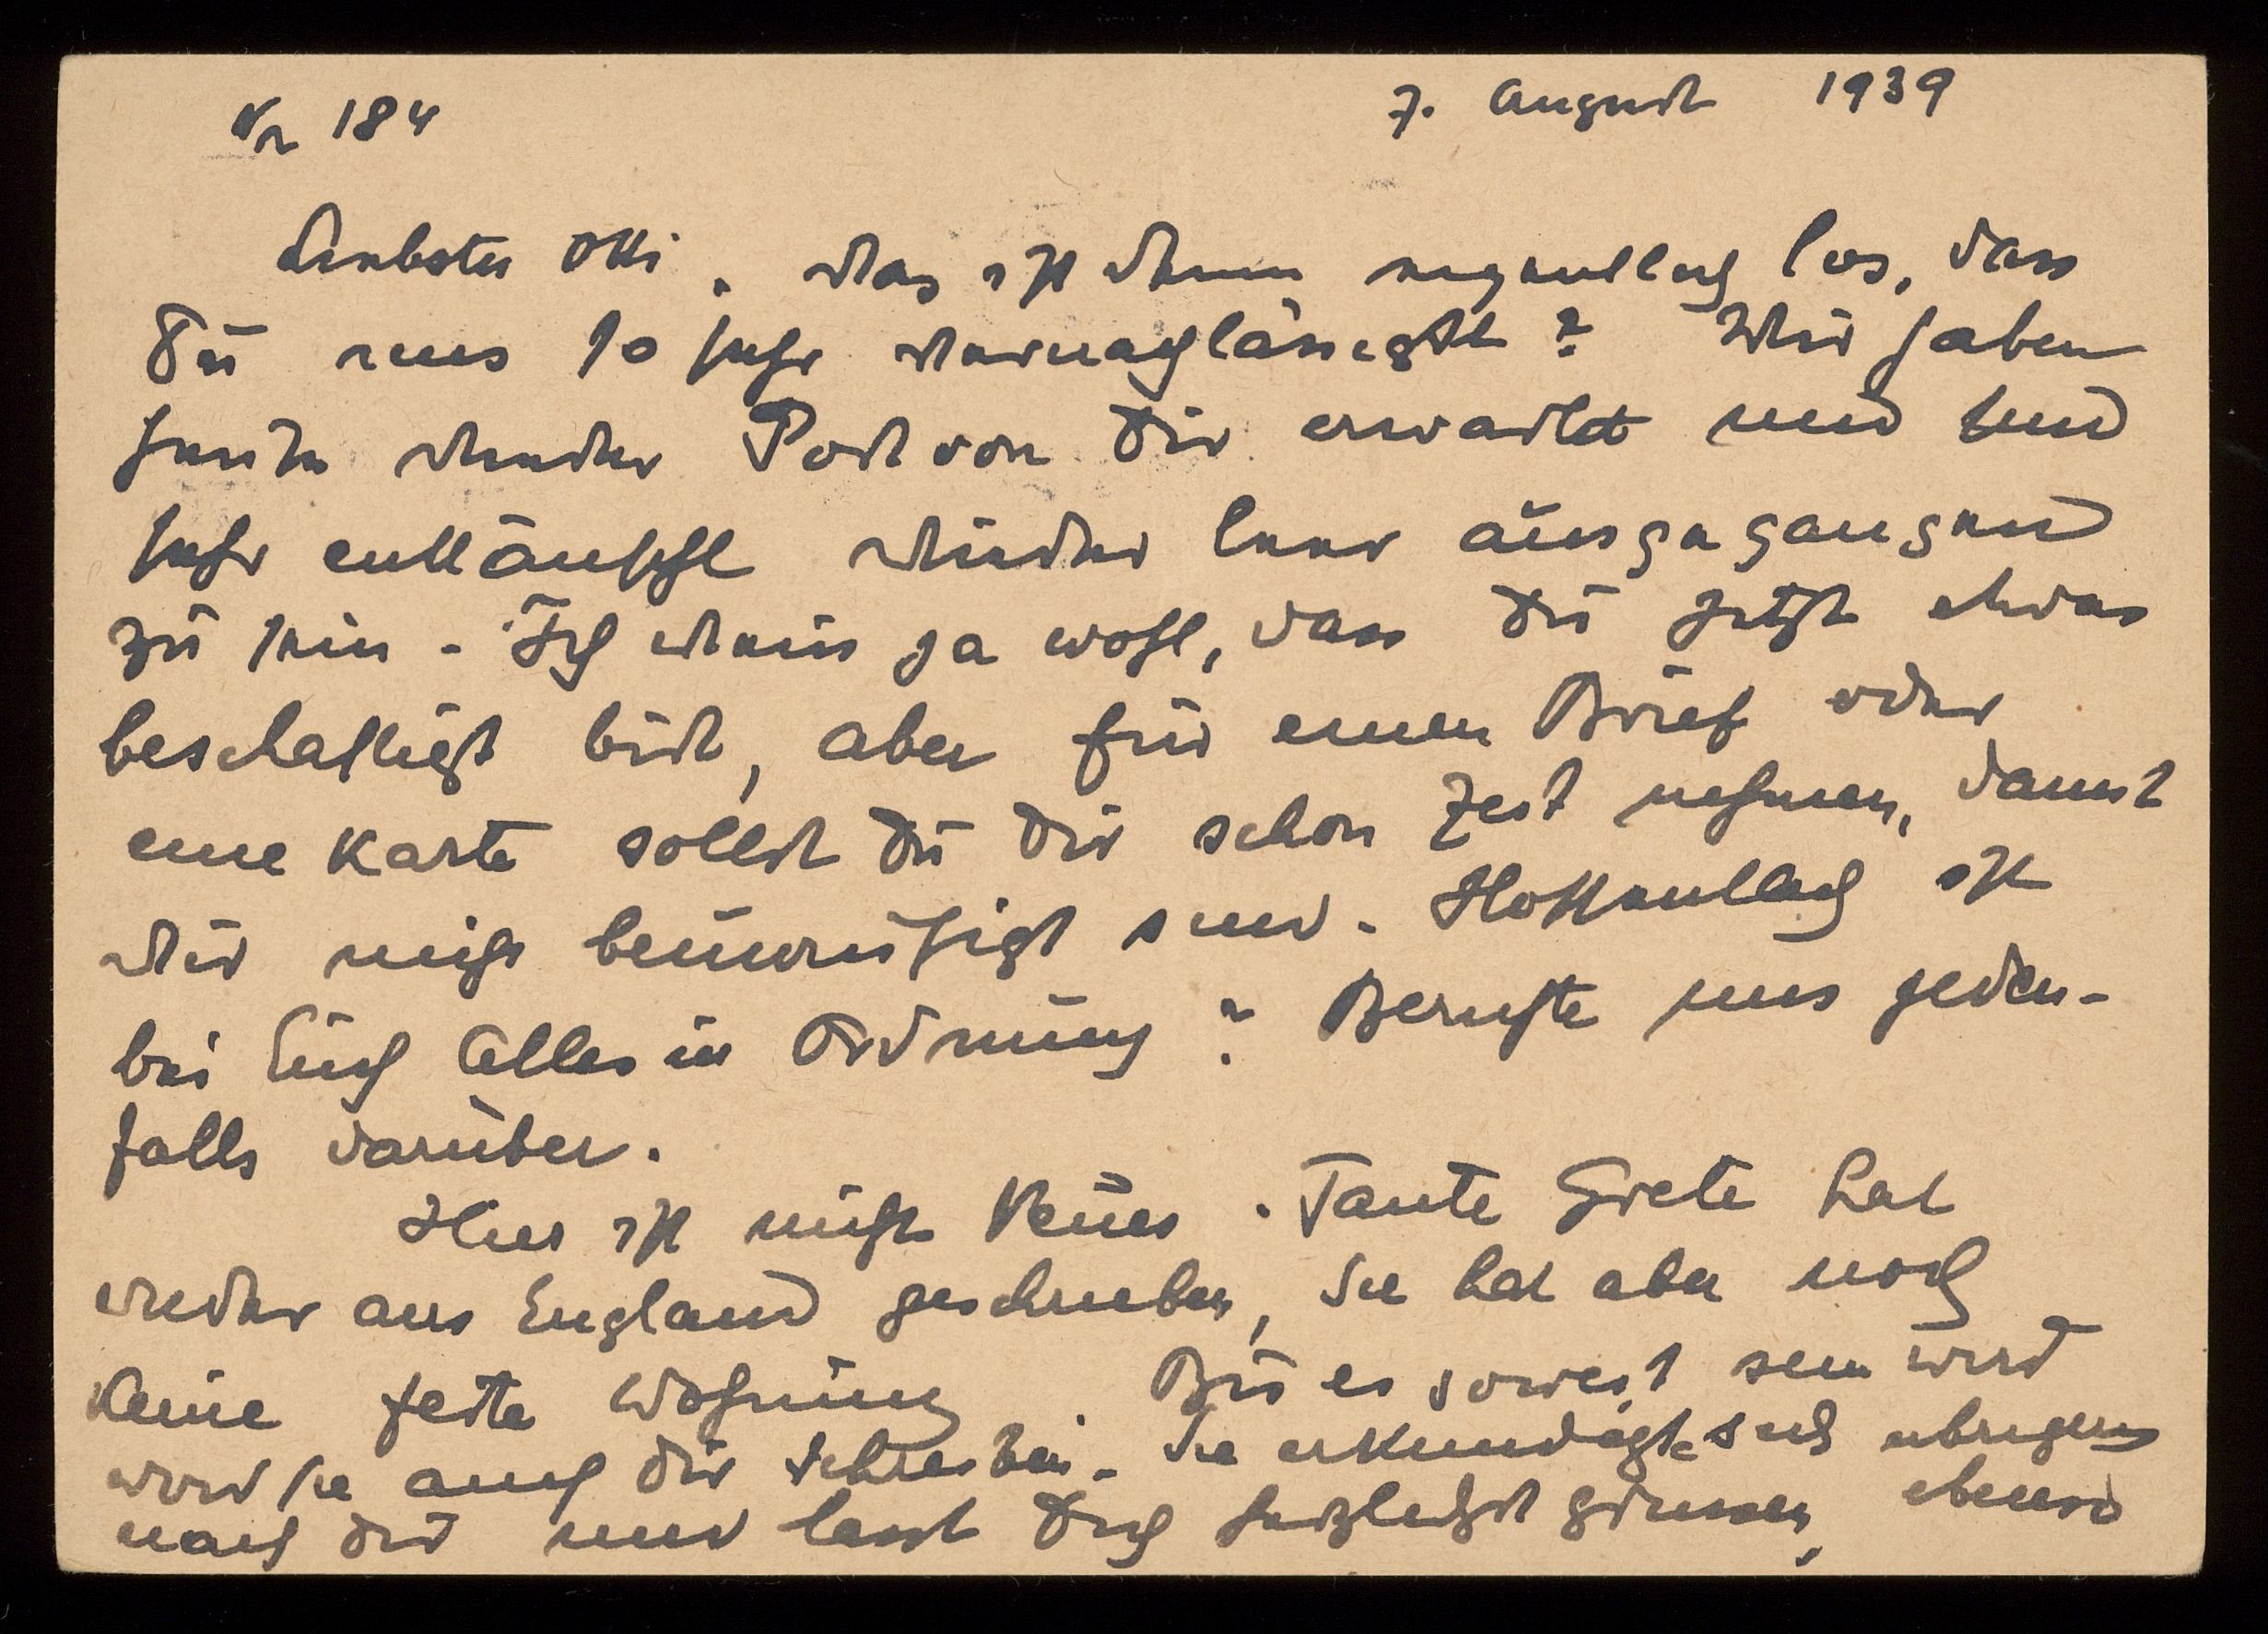 Nr 184 7. August 1939
Liebster Otti. Was ist denn eigentlich los, dass
Du uns so sehr vernachlässigst? Wir haben
heute wieder Post von Dir erwartet und sind
sehr enttäuscht wieder leer ausgegangen
zu sein. Ich weiss ja wohl, dass Du jetzt etwas
beschäftigt bist, aber für einen Brief oder
eine Karte sollst Du Dir schon Zeit nehmen, damit
wir nicht beunruhigt sind. Hoffentlich ist
bei Euch Alles in Ordnung? Berichte uns jeden-
falls darüber.
Hier ist nichts Neues. Tante Grete hat
wieder aus England geschrieben, sie hat aber noch
keine feste Wohnung. Bis es soweit sein wird
wird sie auch Dir schreiben. Sie erkundigte sich übrigens
nach Dir und lässt Dich herzlichst grüssen, ebenso